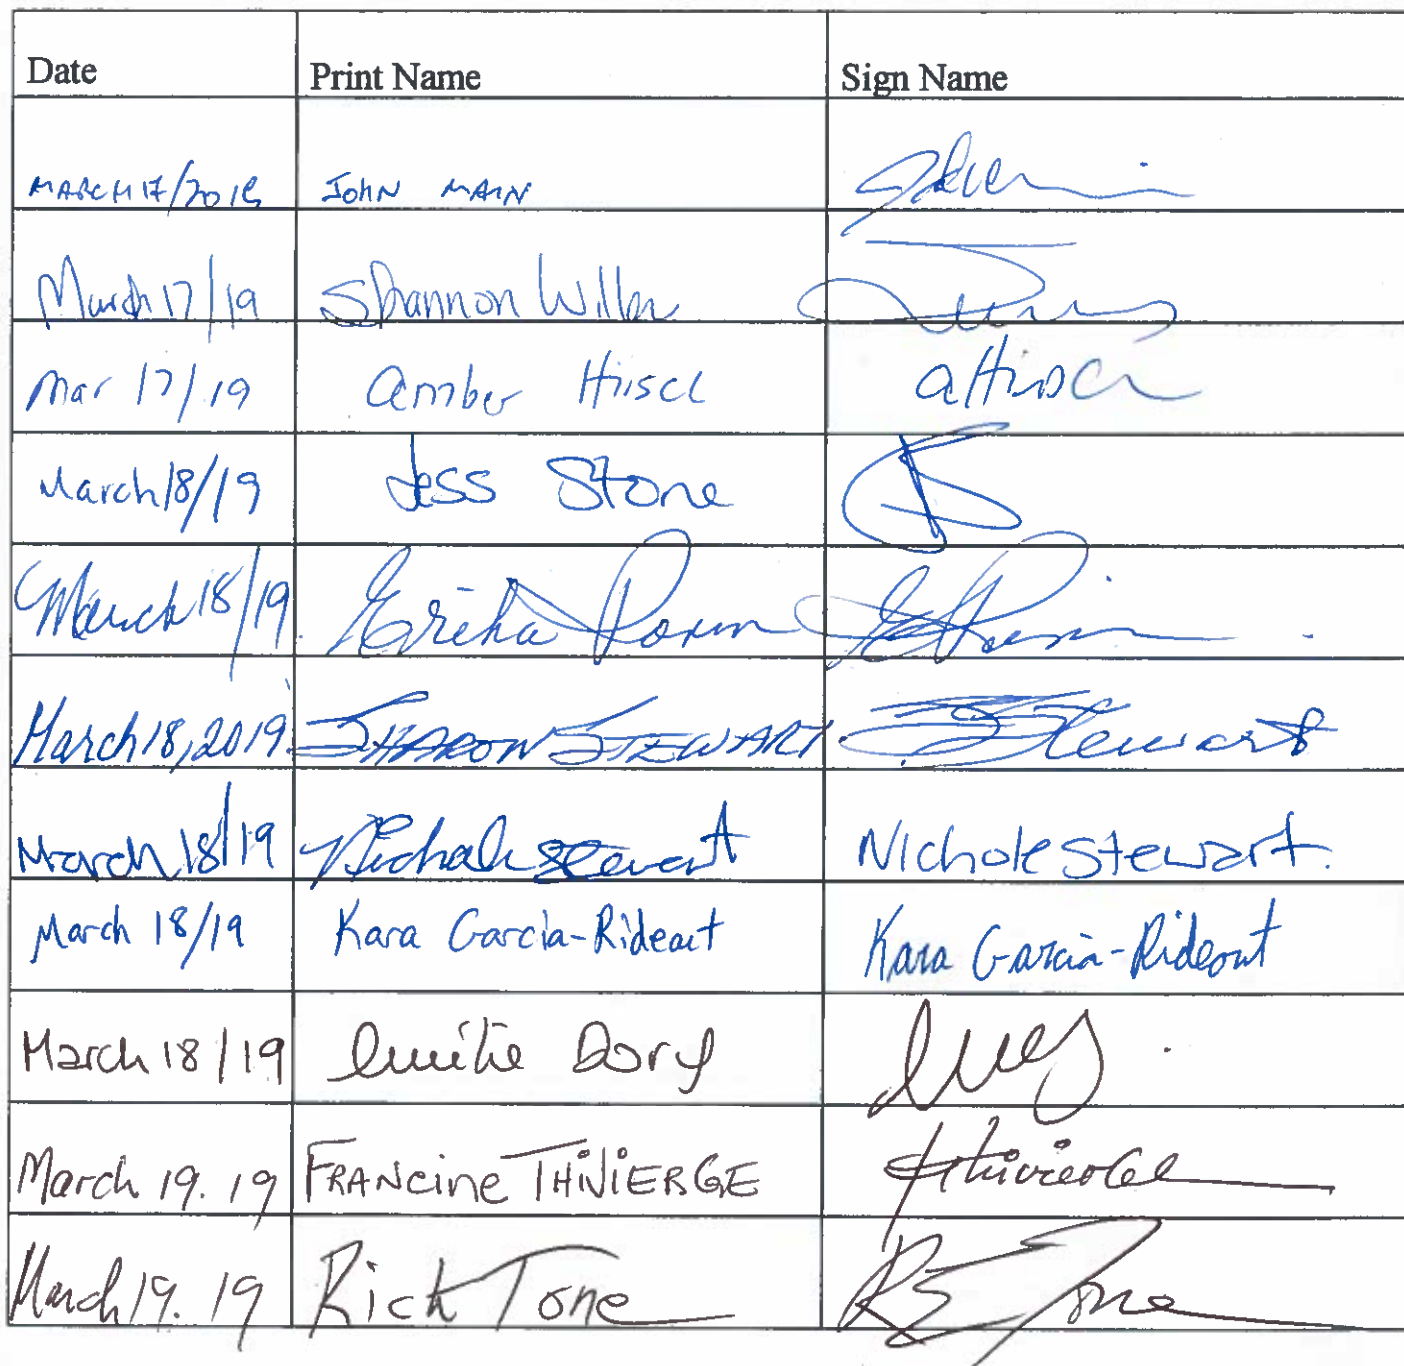 Date Print Name Sign Name
MARCH 17/2019 JOHN MAIN
March 17/19 Shannon
Mar 17/19 Amber Hirsch aHirsch
March 18/19 Jess Stone
March 18/19 Erika
March 18, 2019. SHARON STEWART. Stewart
March 18/19 Nichole Stewart Nichole Stewart.
March 18/19 Kara Garcia-Rideout Kara Garcia-Rideout
March 18/19 Emilie
March 19. 19 FRANCINE THIVIERGE fthivierge
March 19. 19 Rick Tone R Tone